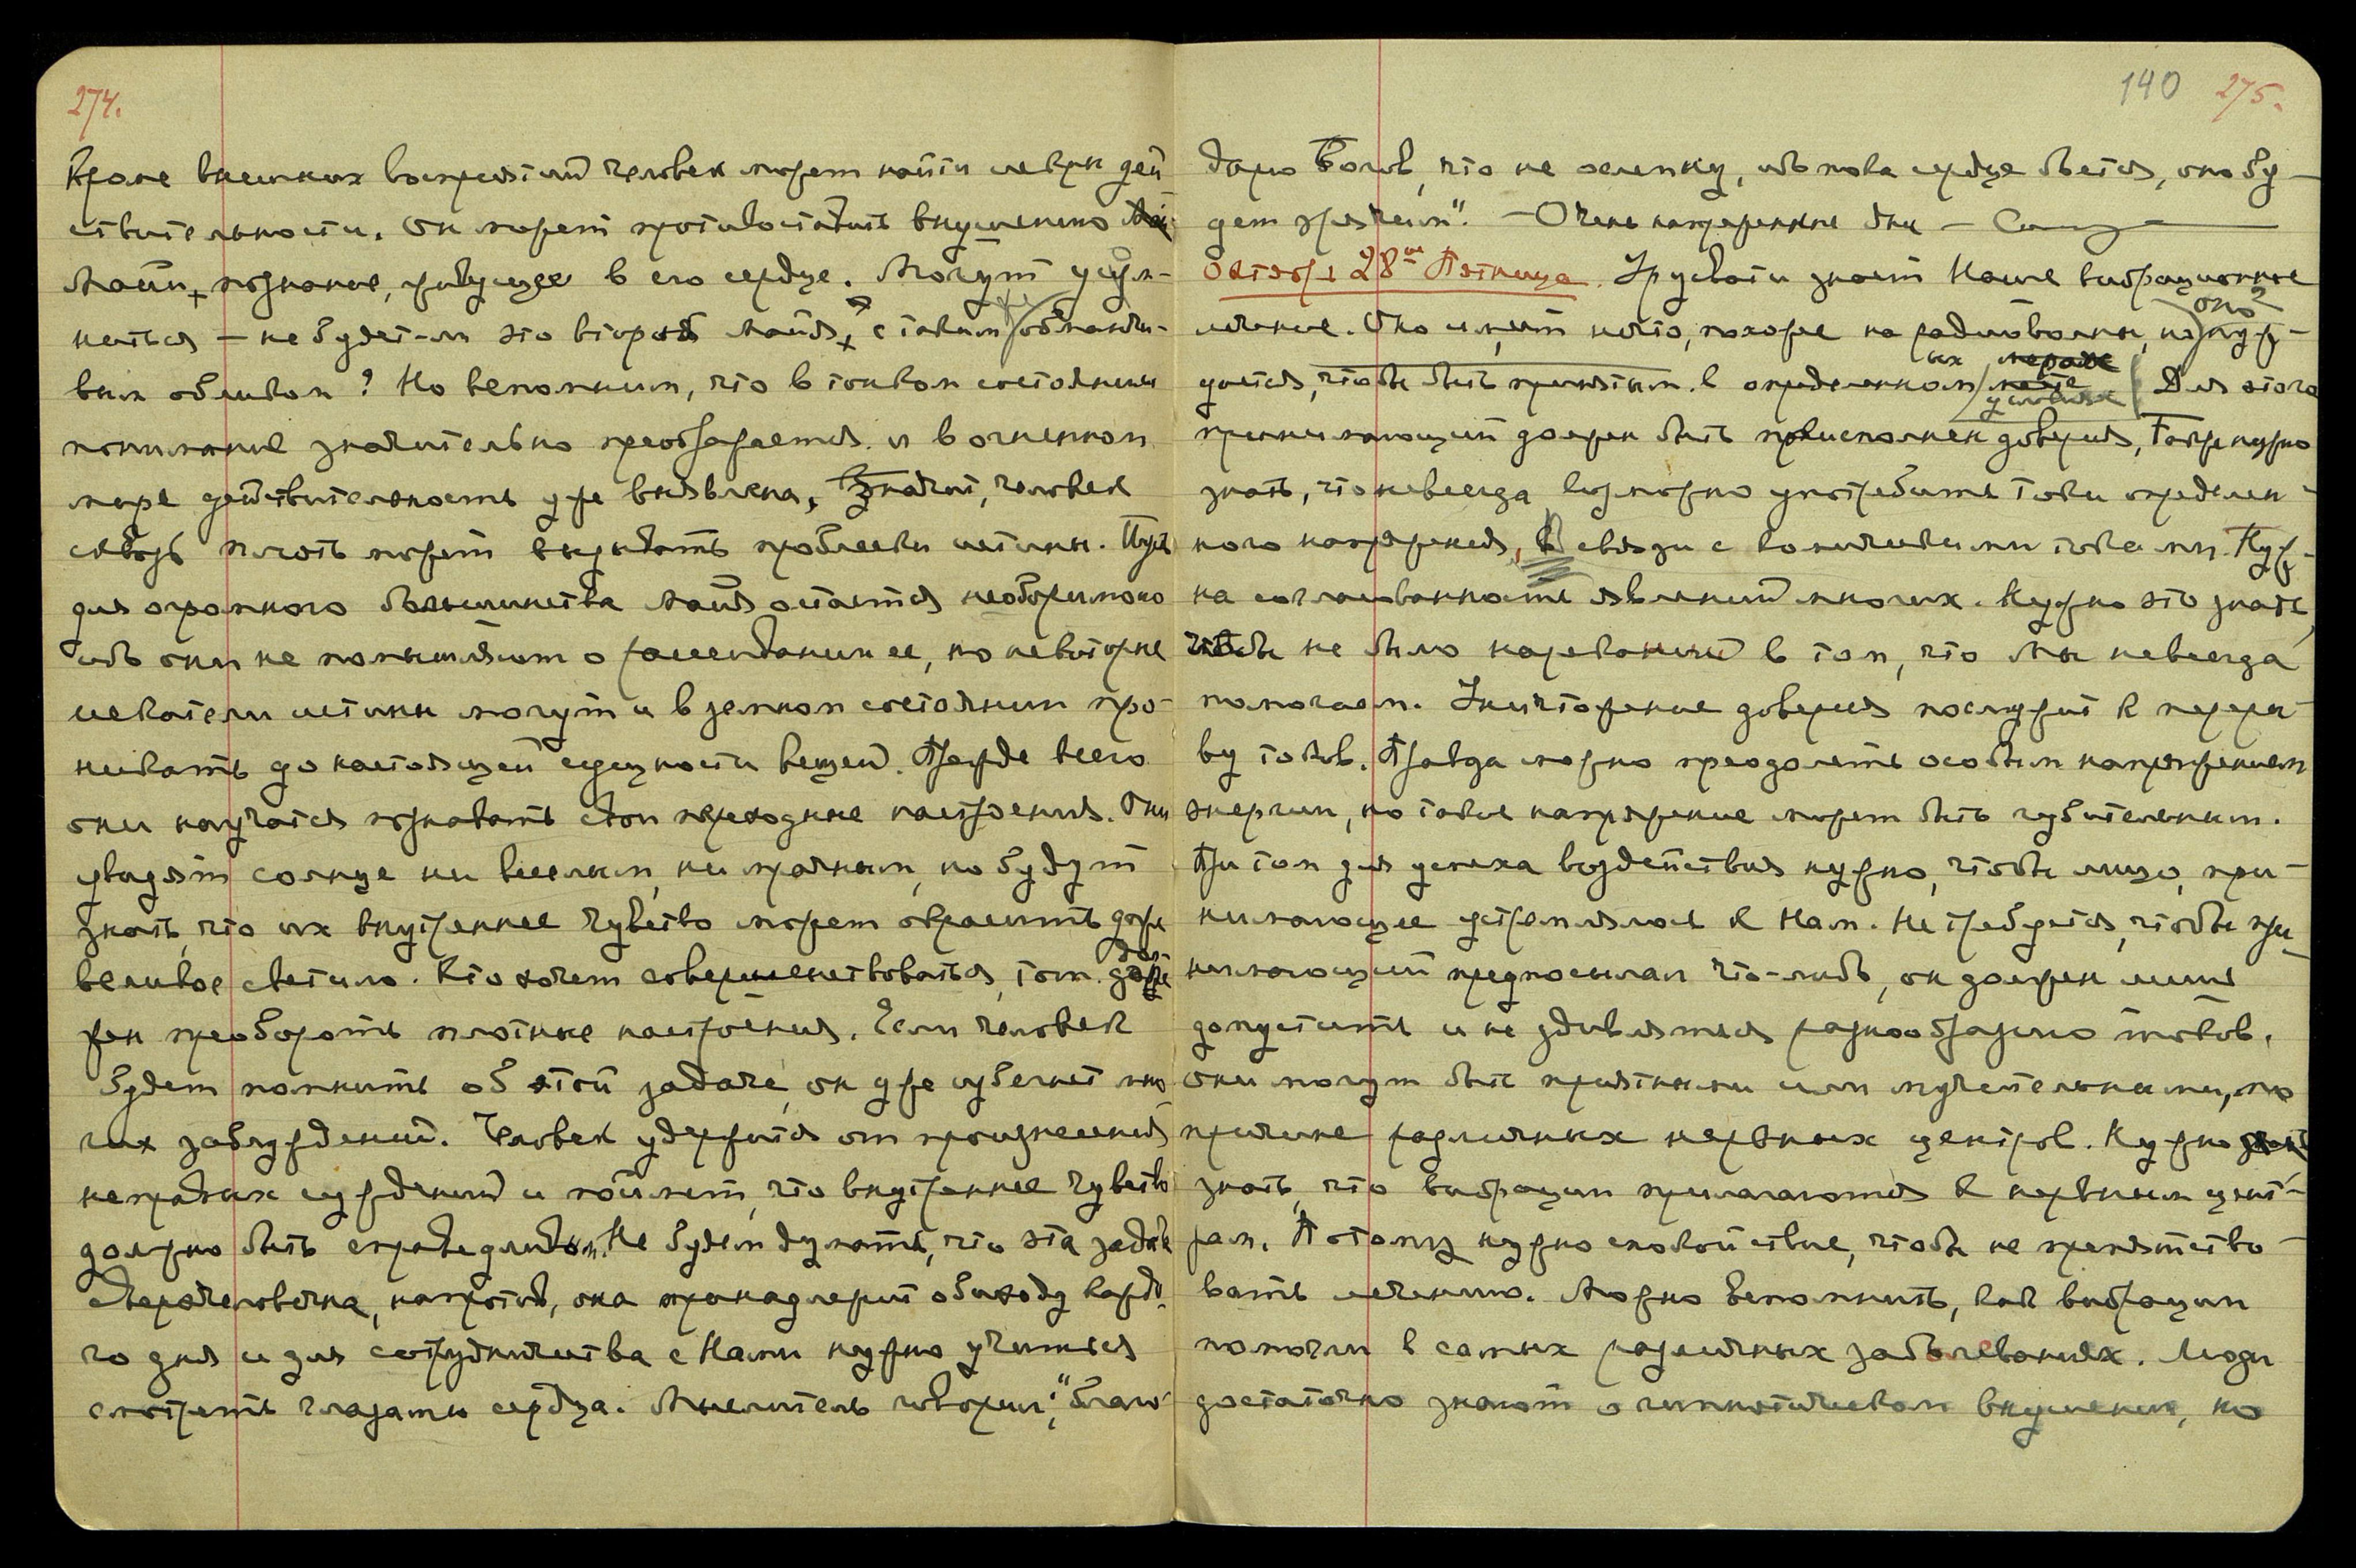 274.
Кроме внешних восприятий человек может найти искры дей
ствительности. Он может противоставить внушению
Майи, познание, живущее в его сердце. Могут усум-
ниться — не будет-ли это вторая Майя, с таким же обманчи-
вым обликом? Но вспомним, что в тонком состоянии
понимание значительно преображается и в огненном
мире действительность уже выявлена, Значит, человек
сквозь плоть может вызывать проблески истины. Пусть
для огромного большинства Майя остается необоримою
ибо они не помышляют о распознании ее, но некоторые
искатели истины могут и в земном состоянии про-
никать до настоящей сущности вещей. Прежде всего
они научатся познавать свои преходящие настроения. Они
увидят солнце ни веселым, ни мрачным, но будут
знать, что их внутреннее чувство может окрасить даже
великое светило. Кто хочет совершенствоваться, тот дол-
жен преобороть плотные настроения. Если человек
будет помнить об этой задаче, он уже избегнет мно
гих заблуждений. Человек удержится от произнесения
неправых суждений и поймет, что внутреннее чувство
должно быть справедливым. Не будем думать, что эта задача
сверхчеловечна, напротив, она принадлежит обиходу каждо-
го дня и для сотрудничества с Нами нужно учиться
смотреть глазами сердца. Мыслитель говорил: "благо
140 275.
дарю Богов, что не ослепну, ибо пока сердце бьется, оно бу-
дет зрячим". — Очень напряженные дни —
Октябрь 28ое Пятница. Урусвати знает Наше вибрационное
лечение. Оно имеет нечто, похожее на радиоволны, но оно нуж-
дается, чтобы быть принятым в определенных условиях Для этого
принимающий должен быть преисполнен доверия, Также нужно
знать, что не всегда возможно употребить токи определен-
ного напряжения, В связи с космическими токами. Нуж-
на согласованность явлений многих. Нужно это знать,
чтобы не было нареканий в том, что Мы не всегда
помогаем. Уничтожение доверия послужит к переры-
ву токов. Правда можно преодолеть особым напряжением
энергии, но такое напряжение может быть губительным.
При том для успеха воздействия нужно, чтобы лицо, при-
нимающее устремлялось к Нам. Не требуется, чтобы при-
нимающий предпосылал что-либо, он должен лишь
допустить и не удивляться разнообразию токов.
они могут быть приятными или мучительными, по
причине различных нервных центров. Нужно
знать, что вибрации прилагаются к нервным цент-
рам. Потому нужно спокойствие, чтобы не препятство-
вать лечению. Можно вспомнить, как вибрации
помогли в самых различных заболеваниях. Люди
достаточно знают о гипнотическом внушении, но